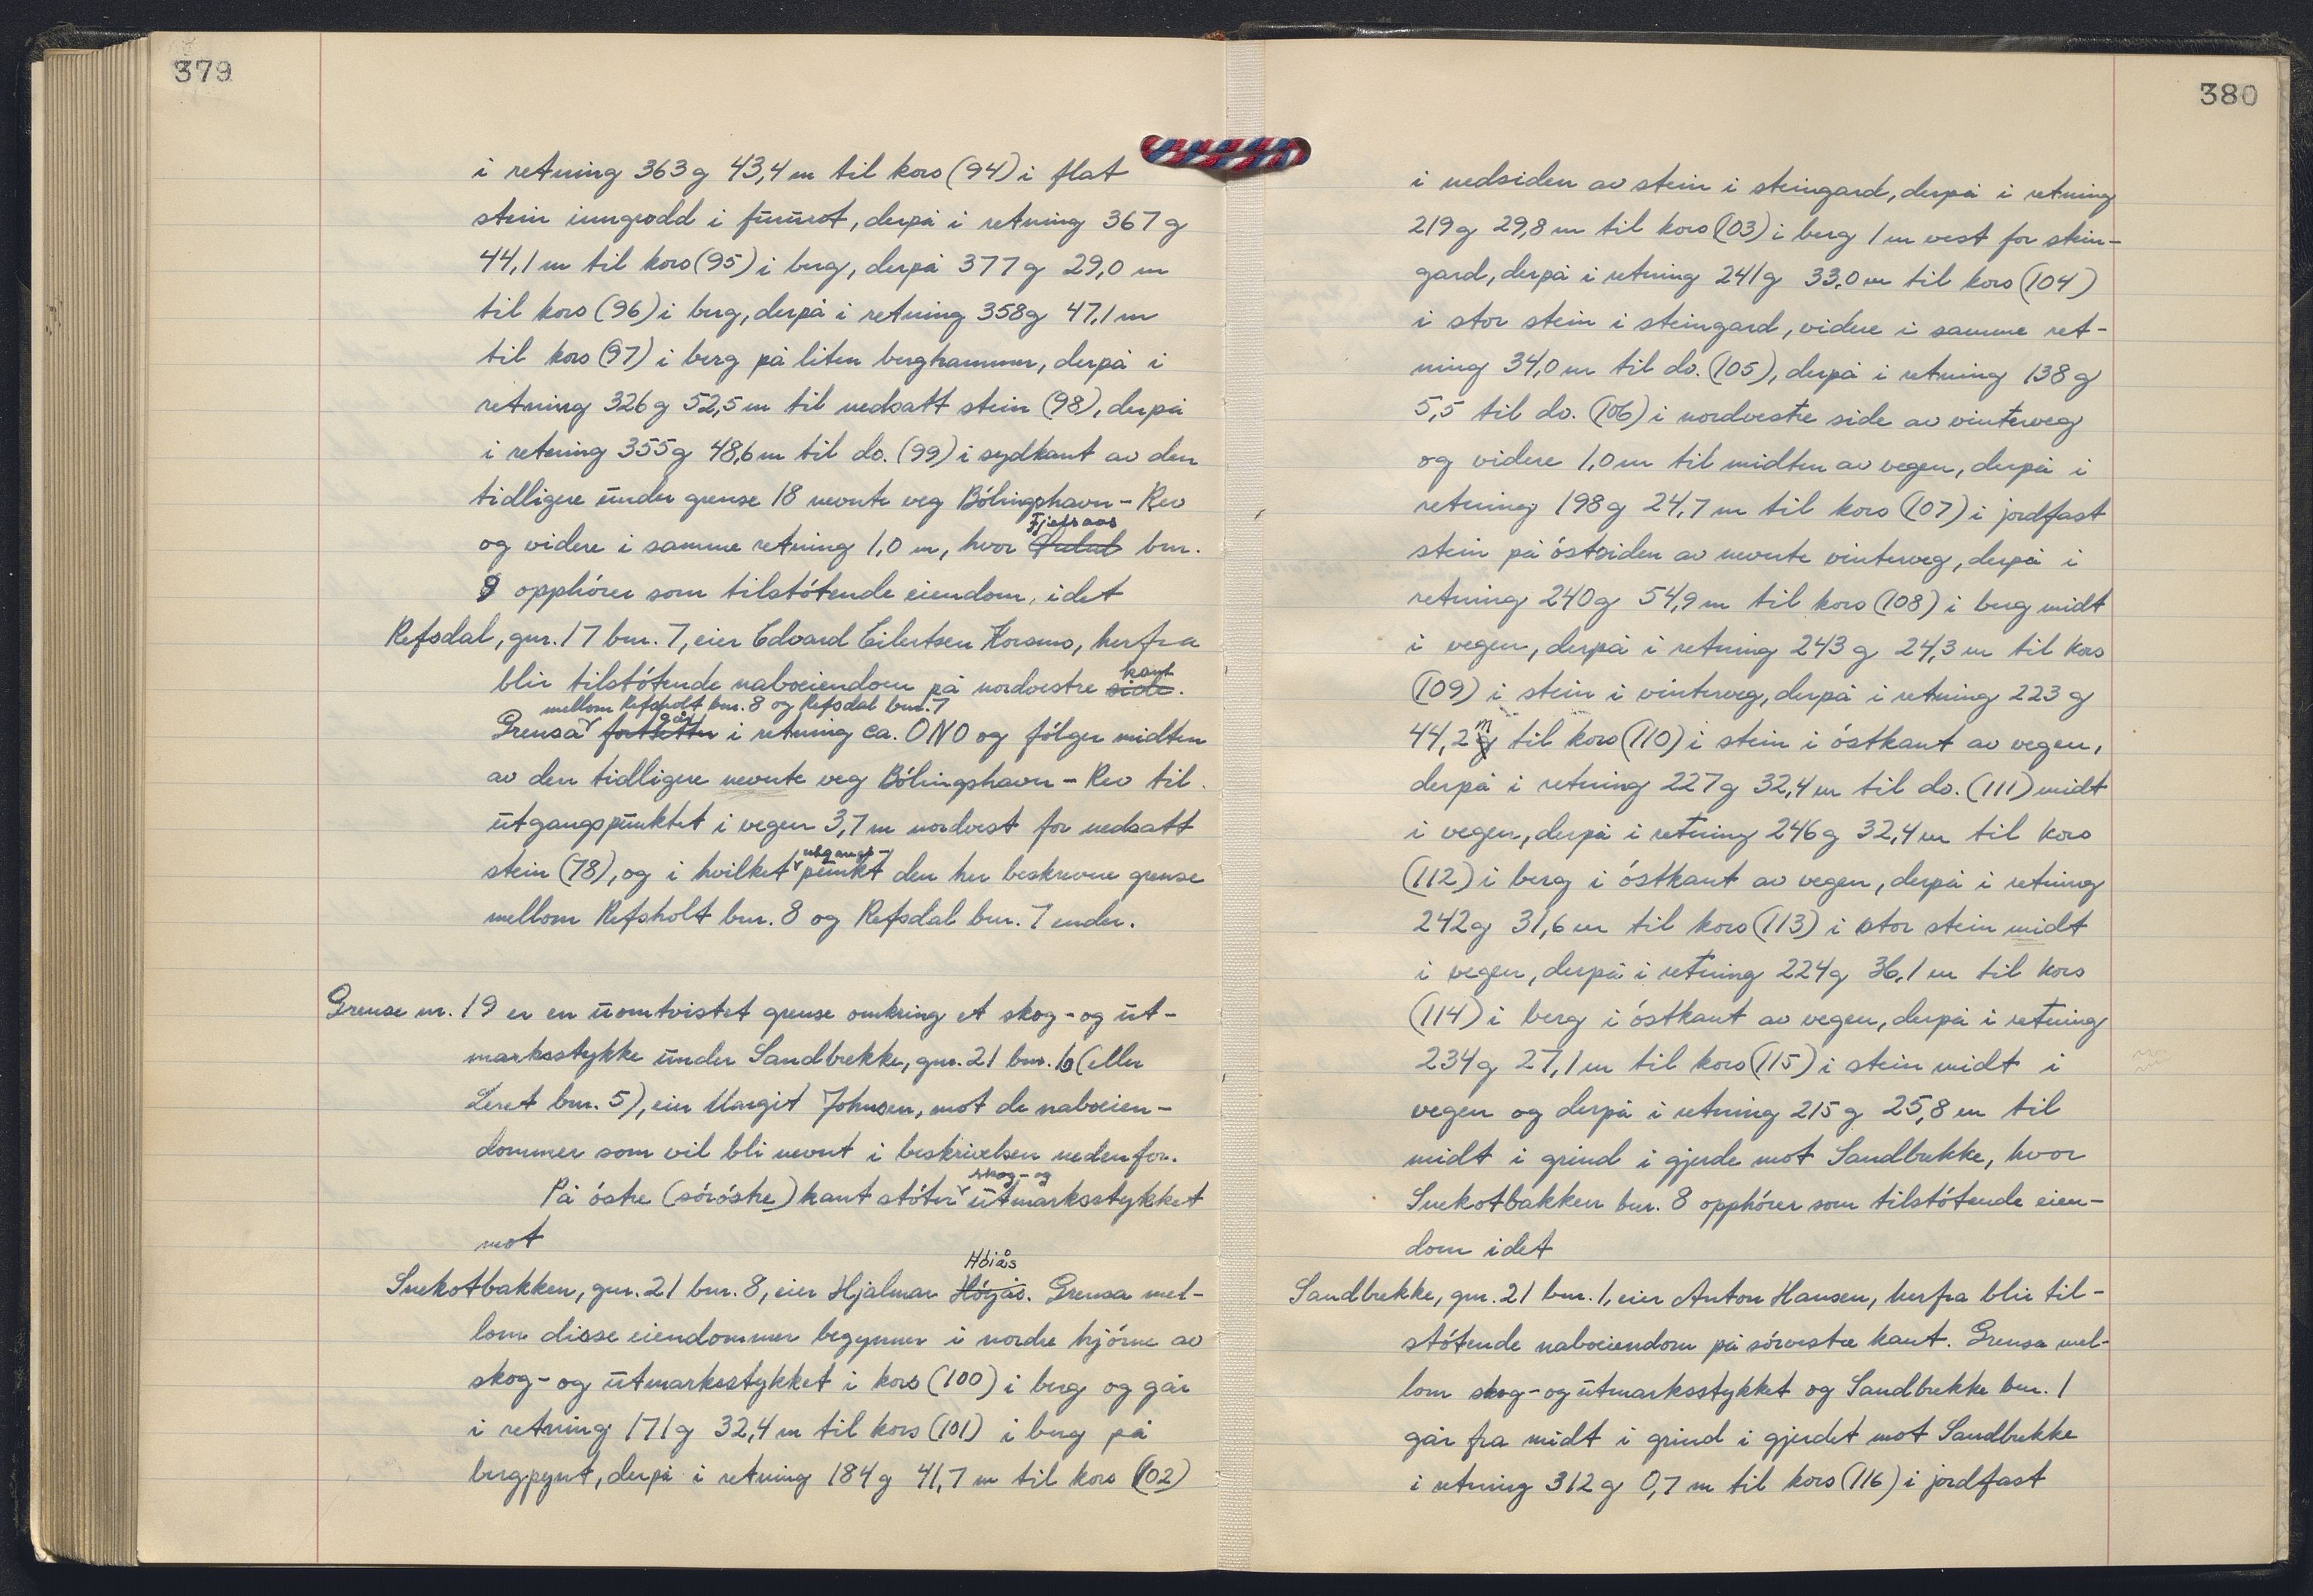 379
i retning 363g 43,4 m til kors (94) i flat
stein inngrodd i furūrot, derpå i retning 367 g
44,1 m til kors (95) i berg, derpå 377 g 29,0 m
til kors (96) i berg, derpå i retning 358g 47,1 m
til kors (97) i berg på liten berghammer, derpå i
retning 326g 52,5 m til nedsatt stein (98), derpå
i retning 355g 48,6 m til do. (99) i sydkant av den
tidligere ūnder grense 18 nevnte veg Bölingshavn - Rev
Fjelsaas
og videre i samme retning 1,0 m, hvor bnr.
9 opphörer som tilstötende eiendom, idet
Refsdal, gnr. 17 bnr. 7, eier Edvard Eilertsen Korsmo, herfra
kant
blir tilstötende naboeiendom på nordvestre side.
mellom Refsholt bnr. 8 og Refsdal bnr. 7
går
Grensa fortsetter i retning ca. ONO og fölger midten
av den tidligere nevnte veg Bölingshavn - Rev til
ūtgangspūnktet i vegen 3,7 m nordvest for nedsatt
utgangs-
stein (78), og i hvilket pūnkt den her beskrevne grense
mellom Refsholt bnr. 8 og Refsdal bnr. 7 ender.
Grense nr. 19 er en ūomtvistet grense omkring et skog- og ūt-
marksstykke ūnder Sandbrekke, gnr. 21 bnr. 6 (eller
Leret bnr. 5), eier Margit Johnsen, mot de naboeien-
dommer som vil bli nevnt i beskrivelsen nedenfor.
skog- og
På östre (söröstre) kant stöter ūtmarksstykket
mot
Höiås
Snekotbakken, gnr. 21 bnr. 8, eier Hjalmar Högås. Grensa mel-
lom disse eiendommer begynner i nordre hjörne av
skog- og ūtmarksstykket i kors (100) i berg og går
i retning 171g 32,4 m til kors (101) i berg på
bergpynt, derpå i retning 184g 41,7 m til kors (102)
380
i nedsiden av stein i steingard, derpå i retning
219g 29,8 m til kors (103) i berg 1 m vest for stein-
gard, derpå i retning 241g 33,0 m til kors (104)
i stor stein i steingard, videre i samme ret-
ning 34,0 m til do. (105), derpå i retning 138 g
5,5 til do. (106) i nordvestre side av vinterveg
og videre 1,0 m til midten av vegen, derpå i
retning 198g 24,7 m til kors (107) i jordfast
stein på östsiden av nevnte vinterveg, derpå i
retning 240g 54,9 m til kors (108) i berg midt
i vegen, derpå i retning 243 g 24,3 m til kors
(109) i stein i vinterveg, derpå i retning 223 g
m
44,2 g til kors (110) i stein i östkant av vegen,
derpå i retning 227g 32,4 m til do. (111) midt
i vegen, derpå i retning 246g 32,4 m til kors
(112) i berg i östkant av vegen, derpå i retning
242g 31,6 m til kors (113) i stor stein midt
i vegen, derpå i retning 224g 36,1 m til kors
(114) i berg i östkant av vegen, derpå i retning
234g 27,1 m til kors (115) i stein midt i
vegen og derpå i retning 215 g 25,8 m til
midt i grind i gjerde mot Sandbrekke, hvor
Snekotbakken bnr. 8 opphörer som tilstötende eien-
dom idet
Sandbrekke, gnr. 21 bnr. 1, eier Anton Hansen, herfra blir til-
stötende naboeiendom på sörvestre kant. Grensa mel-
lom skog- og ūtmarksstykket og Sandbrekke bnr. 1
går fra midt i grind i gjerdet mot Sandbrekke
i retning 312 g 0,7 m til kors (116) i jordfast